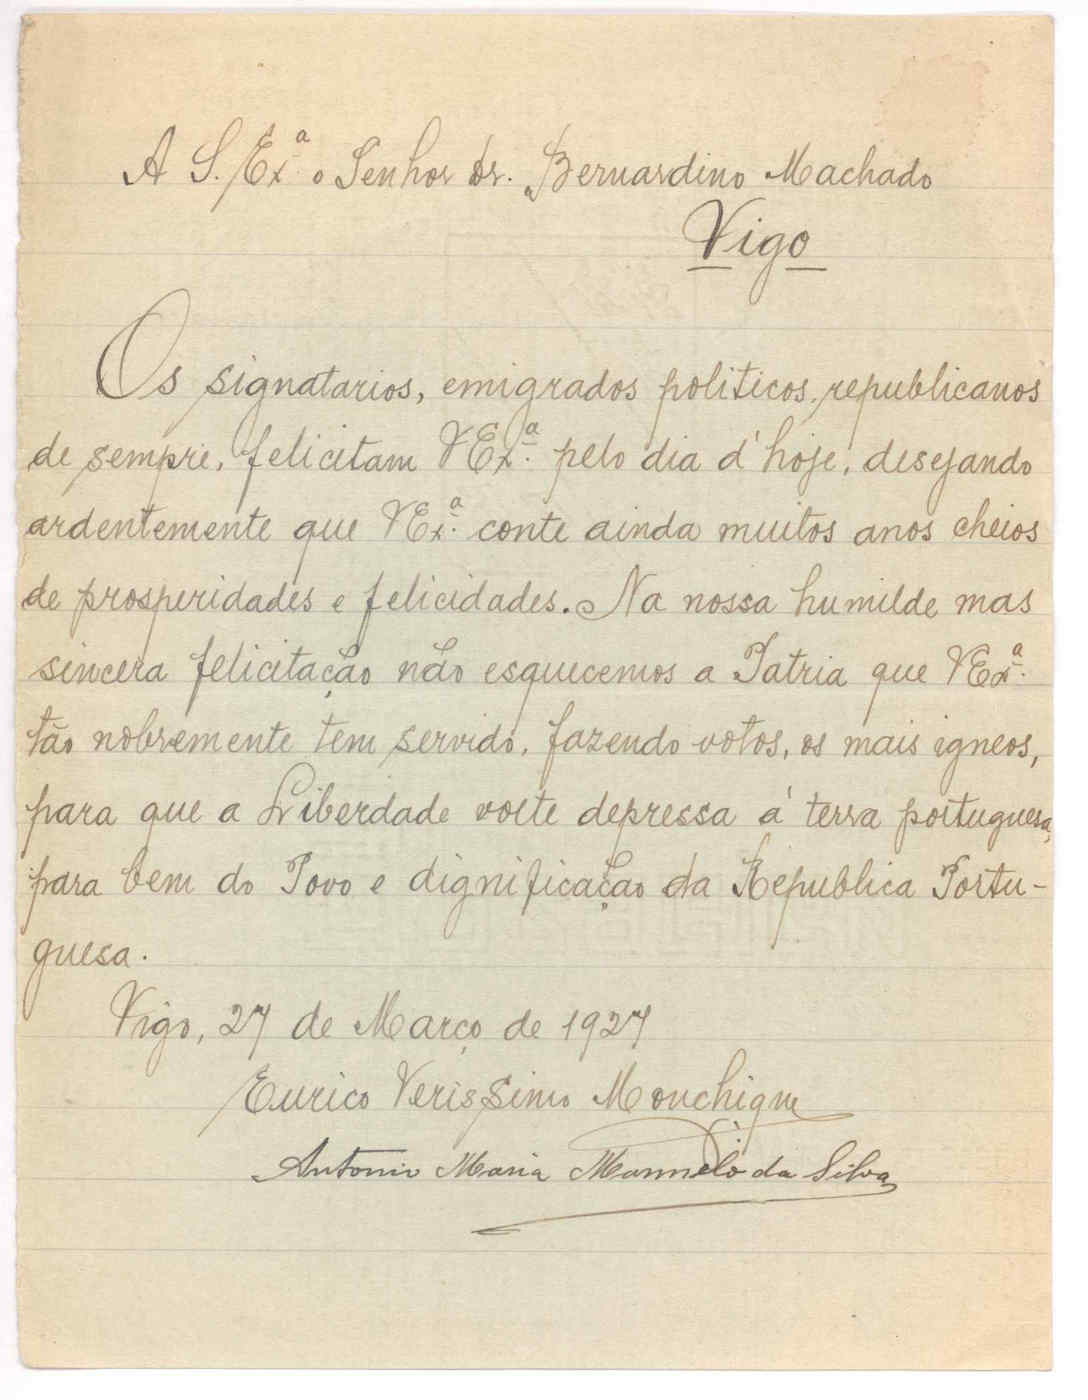 A S. Exª o Senhor dr. Bernardino Machado
Vigo
Os signatarios, emigrados politicos, republicanos
de sempre, felicitam VExª. pelo dia d'hoje, desejando
ardentemente que VExª. conte ainda muitos anos cheios
de prosperidades e felicidades. Na nossa humilde mas
sincera felicitação não esquecemos a Patria que VExª.
tão nobremente tem servido, fazendo votos, os mais igneos,
para que a Liberdade volte depressa á terra portuguesa,
para bem do Povo e dignificação da Republica Portu-
guesa.
Vigo, 27 de Março de 1927
Eurico Verissimo Monchique
Antonio Maria da Silva